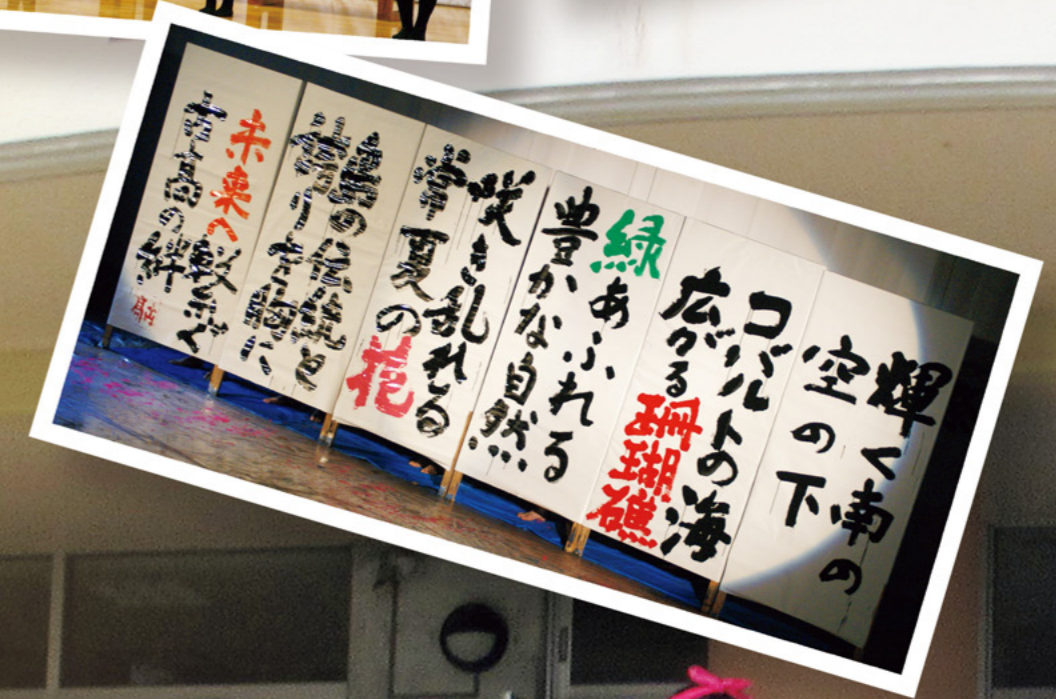 輝く南の
空の下
コバルトの海
広がる珊瑚礁
緑あふれる
豊かな自然
咲き乱れる
常夏の花
島の伝統と
誇りを胸に
未来へ繋ぐ
高の絆